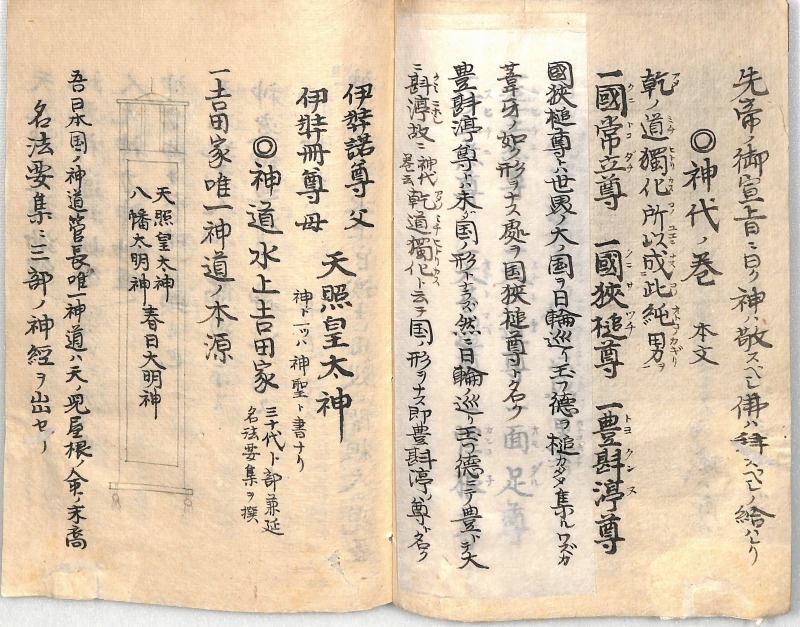 先帝ノ御宣上日ニ曰ク神ハ敬スベシ佛ハ拜スベシノ給ハリ
◎神代ノ巻 本文
乾ノ道獨化所以成此純男ヲ
一國常立尊 一國狭槌尊 一豊斟渟尊
クニ トコ ダチ サ ツチ トヨ クンヌ
國狭槌尊トハ世界ノ大ノ国ヲ日輪巡リ玉フ德ヲ槌カタメ集ルワズカ
葦牙ノ如ノ形ヲナス処ヲ国狭槌尊ト名ク
豊斟渟尊トハ未ダ国ノ形トナラズ然ニ日輪ノ巡リ玉フ德ニテ豊ニ大
ニ斟渟故ニ神代巻云乾道獨化ト云テ国ノ形ヲナス即豊斟渟ノ尊ト名ク
伊弉諾尊 父
伊弉冊尊 母
天照皇太神
神ト一ツハ神聖ト書ナリ
◎神道水上吉田家
三十代卜部兼延
名法要集ヲ撰
一吉田家唯一神道ノ本源
天照皇太神
八幡大明神
春日大明神
吾日本国ノ神道管長唯一神道ハ天ノ児屋根ノ命ノ末裔
名法要集ニ三部ノ神經ヲ出セリ